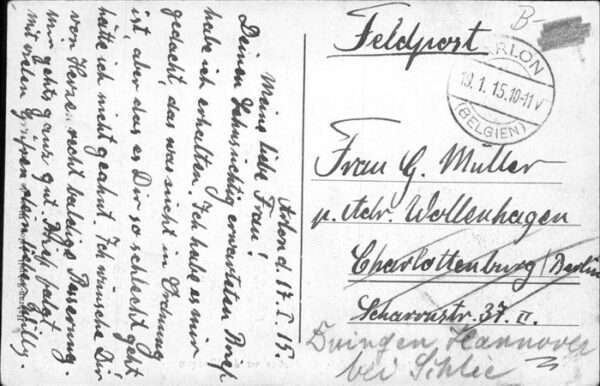 Arlon d. 17. I. 15.
Meine liebe Frau!
Deinen sehnsüchtig erwarteten Brief
habe ich erhalten. Ich habe es mir
gedacht, das was nicht in Ordnung
ist, aber das es Dir so schlecht geht
hätte ich nicht geahnt. Ich wünsche Dir
von Herzen recht baldige Besserung.
Mir gehts ganz gut. Brief folgt
mit vielen Grüßen dein lieber Willy.
B-
Feldpost
ARLON
19.1.15.10-11V
(BELGIEN)
Frau G. Müller
p. Adr. Wollenhagen
Charlottenburg/Berlin
Scharrnstr. 37. II.
Duingen, Hannover
bei Schlie